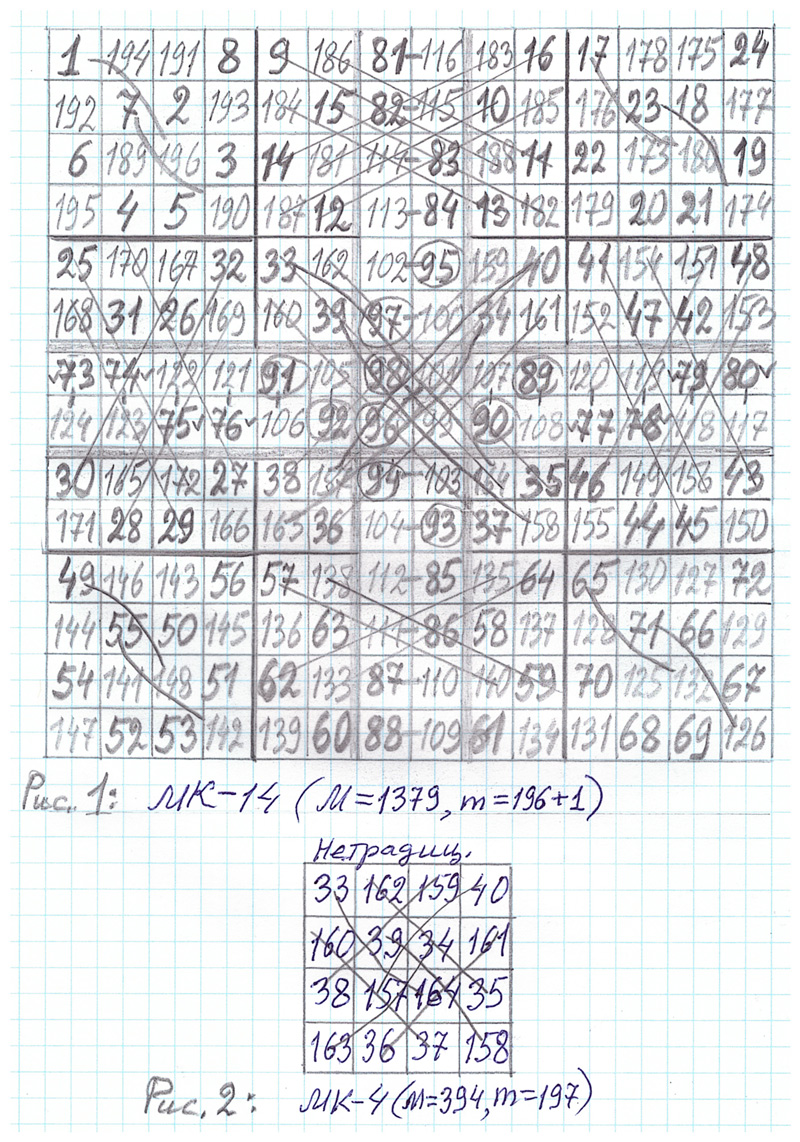 1 194 191 8 9 186 81-116 183 16 17 178 175 24
192 7 2 193 184 15 82-115 10 185 176 23 18 177
6 189 196 3 14 181 114-83 188 11 22 173 180 19
195 4 5 190 187 12 113-84 13 182 179 20 21 174
25 170 167 32 33 162 102-95 159 40 41 154 151 48
168 31 26 169 160 39 97-100 34 161 152 47 42 153
73 74 122 121 91 105 98 101 107 89 120 119 79 80
124 123 75 76 106 92 96 99 90 108 77 78 118 117
30 165 172 27 38 157 94-103 164 35 46 149 156 43
171 28 29 166 163 36 104-93 37 158 155 44 45 150
49 146 143 56 57 138 112-85 135 64 65 130 127 72
144 55 50 145 136 63 111-86 58 137 128 71 66 129
54 141 148 51 62 133 87-110 140 59 70 125 132 67
147 52 53 142 139 60 88-109 61 134 131 68 69 126
Рис. 1: МК-14 (М=1379, m=196+1)
Нетрадиц.
33 162 159 40
160 39 34 161
38 157 164 35
163 36 37 158
Рис. 2: МК-4 (М=394, m=197)